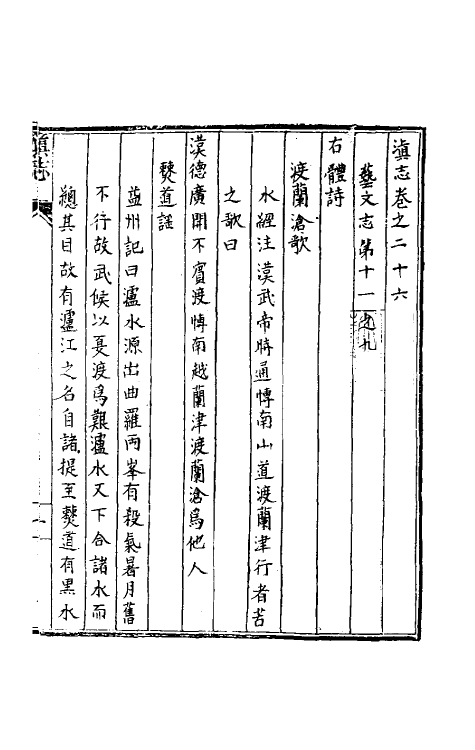 滇志卷之二十六
藝文志第十一之九
右體詩
渡蘭滄歌
水經注漠武帝時通博南山道渡蘭津行者苦
之歌曰
漠德廣開不賓渡博南越蘭津渡蘭滄爲他人
僰道謡
益州記曰瀘水源出曲羅兩峯有殺氣暑月舊
不行故武候以夏渡爲艱瀘水又下合諸水而
總其目故有瀘江之名自諸提至僰道有黑水
滇志